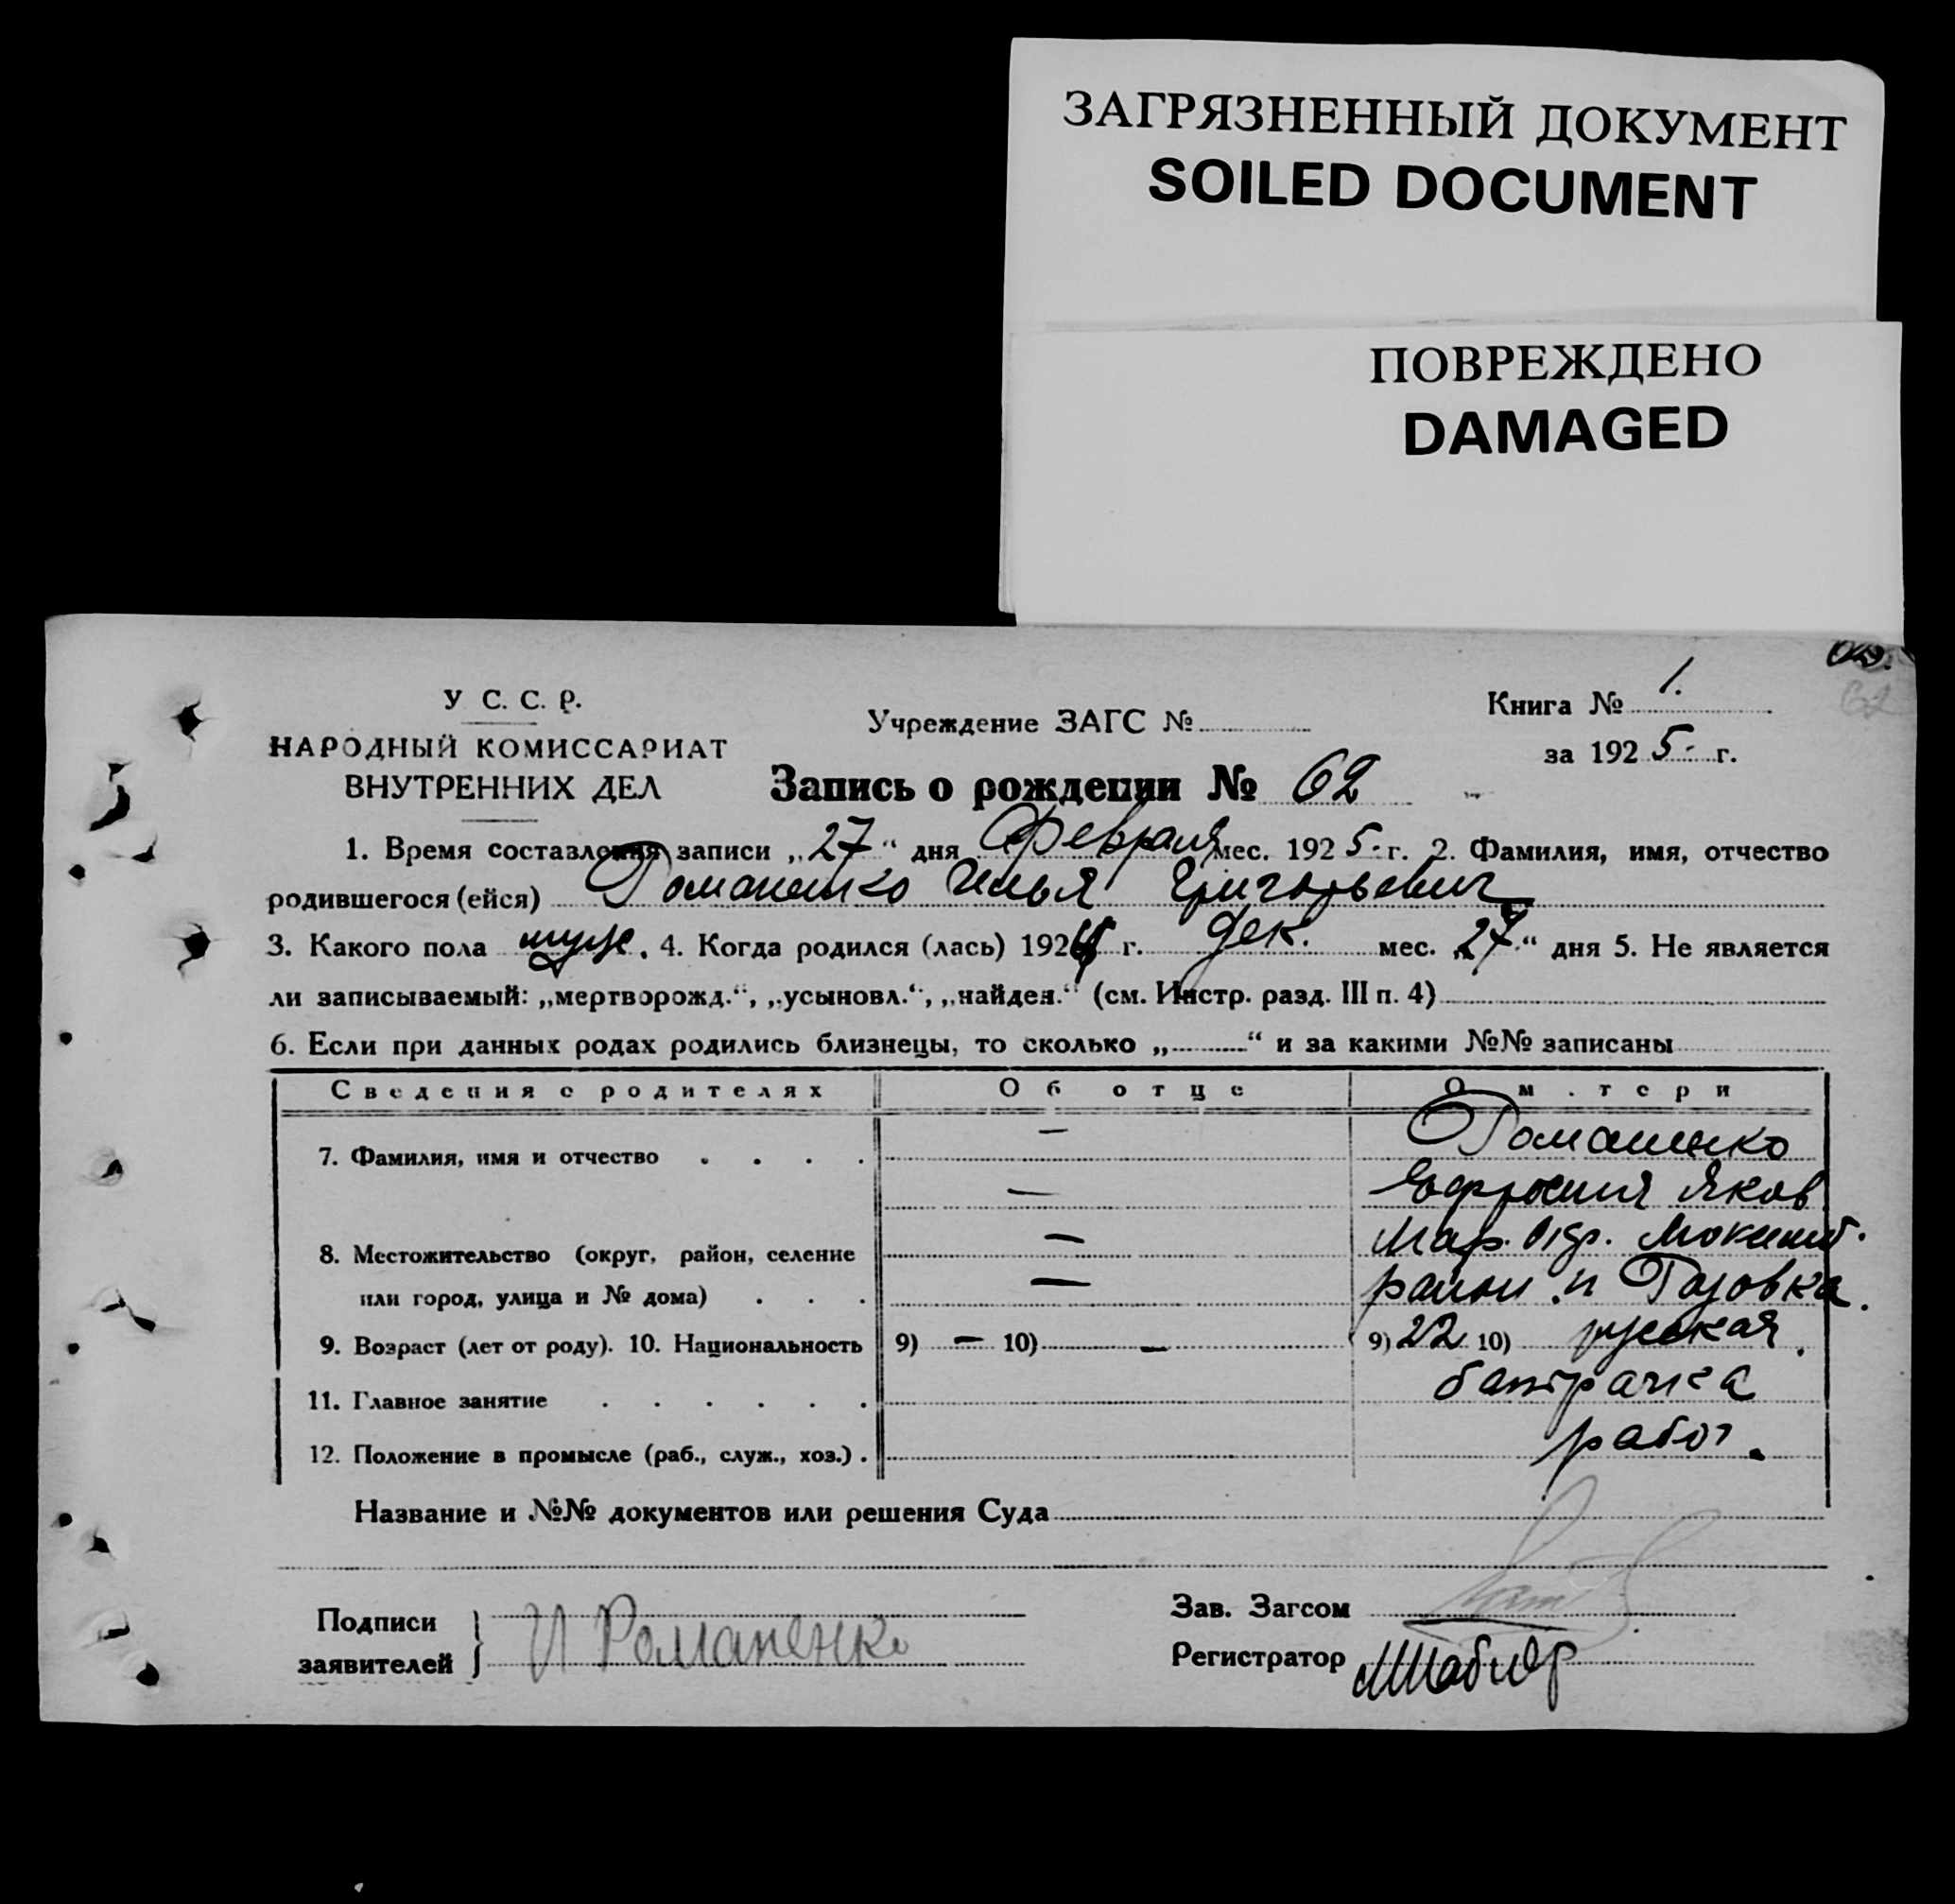 ЗАГРЯЗНЕННЫЙ ДОКУМЕНТ
SOILED DOCUMENT
ПОВРЕЖДЕНО
DAMAGED
У С. С. Р.
НАРОДНЫЙ КОМИССАРИАТ
ВНУТРЕННИХ ДЕЛ
Учреждение ЗАГС №
Книга № 1.
за 1925 г.
Запись о рождении № 62
1. Время составления записи „27“ дня Февраля мес. 1925 г. 2. Фамилия, имя, отчество
родившегося (ейся) Романенко Илья Григорьевич
3. Какого пола муж. 4. Когда родился (лась) 1924 г. Дек. мес. 27“ дня 5. Не является
ли записываемый: „мертворожд.“, „усыновл.“, „найден.“ (см. Инстр. разд. III п. 4)
6. Если при данных родах родились близнецы, то сколько „ “ и за какими №№ записаны
Сведения о родителях Об отце О м.тери
7. Фамилия, имя и отчество — Романенко
— Ефросиния Яков
8. Местожительство (округ, район, селение — Мар. Окр.
или город, улица и № дома) — район
9. Возраст (лет от роду). 10. Национальность 9) — 10) — 9) 22 10) русская.
11. Главное занятие батрачка
12. Положение в промысле (раб., служ., хоз.) работ.
Название и №№ документов или решения Суда
Подписи
заявителей } И Романенко
Зав. Загсом
Регистратор